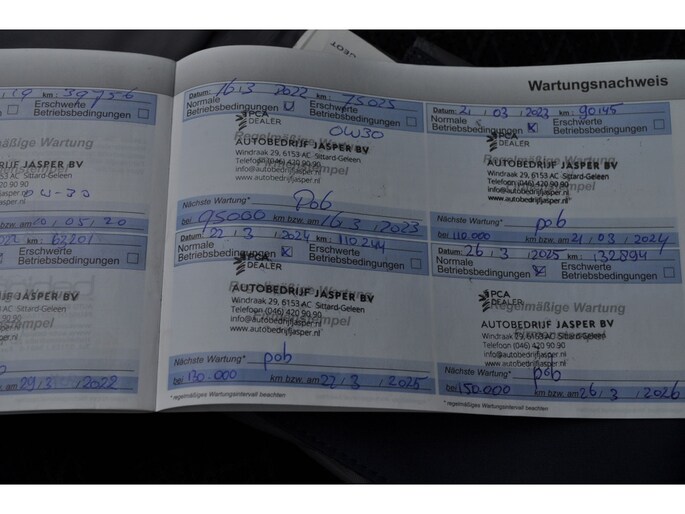 EOT
Wartungsnachweis
19 km: 39756
Erschwerte
Betriebsbedingungen
Regelmäßige Wartung
RIJF JASPER BV
6153 AC Sittard-Geleen
420 90 90
jasper.nl
am 10,05,20
2022 km: 62201
Erschwerte
Betriebsbedingungen
stempel
IJF JASPER BV
6153 AC Sittard-Geleen
420 90 90
jasper.nl
am 29,3, 2022
Datum: 16,3 2022 km: 75025
Normale
Betriebsbedingungen
Erschwerte
Betriebsbedingungen
PCA
DEALER
OW30
Regelmäßige Wartung
AUTOBEDRIJF JASPER BV
Windraak 29, 6153 AC Sittard-Geleen
Telefoon (046) 420 90 90
info@autobedrijfjasper.nl
www.autobedrijfjasper.nl
Nächste Wartung* pob
bei 95000 km bzw. am 16,3,2023
Datum: 21,03,2023 km: 90145
Normale
Betriebsbedingungen
Erschwerte
Betriebsbedingungen
PCA
DEALER
Regelmäßige Wartung
AUTOBEDRIJF JASPER BV
Windraak 29, 6153 AC Sittard-Geleen
Telefoon (046) 420 90 90
info@autobedrijfjasper.nl
www.autobedrijfjasper.nl
Nächste Wartung* pob
bei 110.000 km bzw. am 21,03,2024
Datum: 22,3,2024 km: 110.244
Normale
Betriebsbedingungen
Erschwerte
Betriebsbedingungen
PCA
DEALER
Regelmäßige Wartung
AUTOBEDRIJF JASPER BV
Windraak 29, 6153 AC Sittard-Geleen
Telefoon (046) 420 90 90
info@autobedrijfjasper.nl
www.autobedrijfjasper.nl
Nächste Wartung* pob
bei 130.000 km bzw. am 22,3,2025
* regelmäßiges Wartungsintervall beachten
Datum: 26,3,2025 km: 132894
Normale
Betriebsbedingungen
Erschwerte
Betriebsbedingungen
PCA
DEALER
Regelmäßige Wartung
AUTOBEDRIJF JASPER BV
Windraak 29, 6153 AC Sittard-Geleen
Telefoon (046) 420 90 90
info@autobedrijfjasper.nl
www.autobedrijfjasper.nl
Nächste Wartung* pob
bei 150.000 km bzw. am 26,3,2026
* regelmäßiges Wartungsintervall beachten